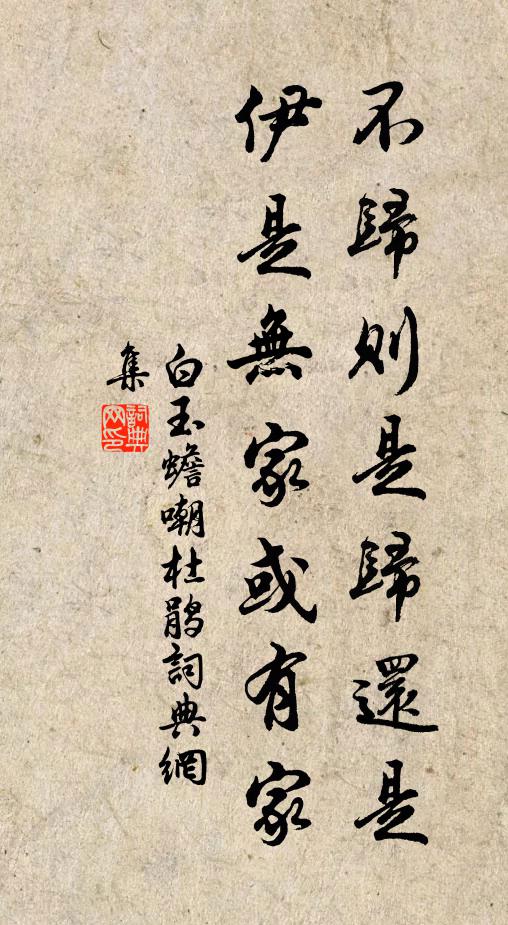 不歸則是歸還是
伊是無家或有家
白玉蟾嘲杜鵑詞典網
集
詞典網印